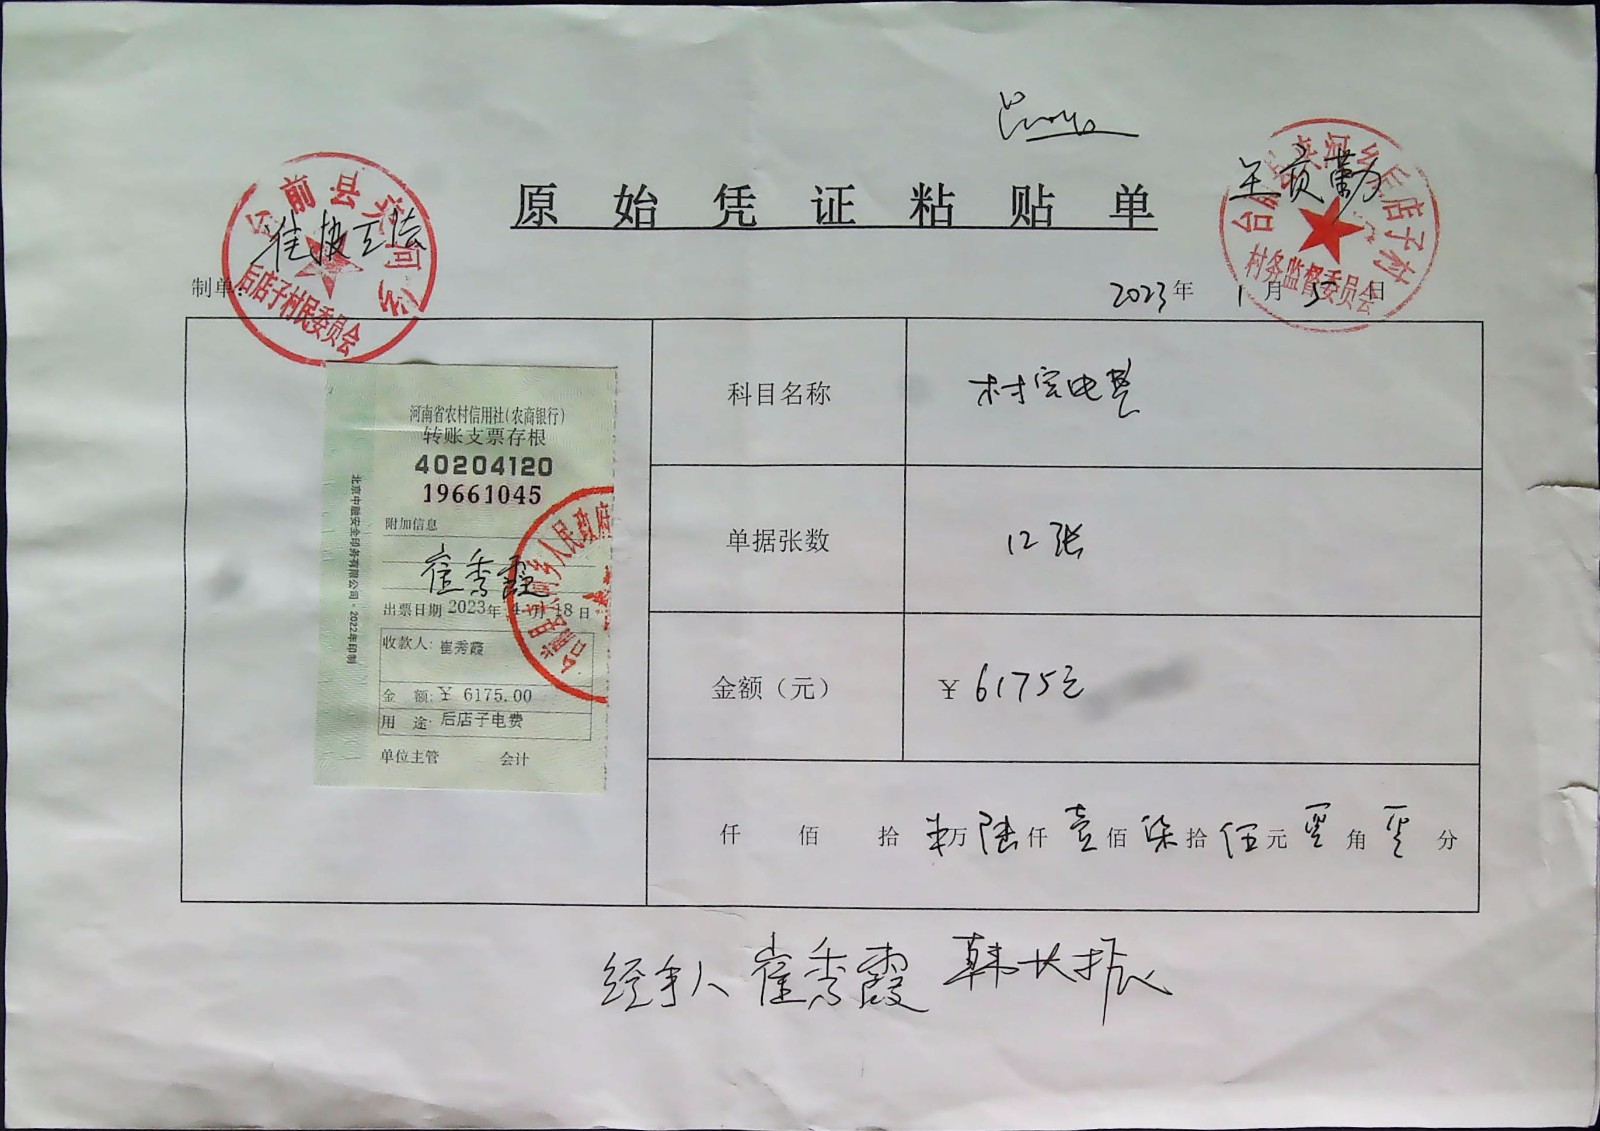 原始凭证粘贴单
制单:
2023年 1月 5日
台前县夹河乡
后店子村民委员会
台前县夹河乡后店子村
村务监督委员会
河南省农村信用社(农商银行)
转账支票存根
40204120
19661045
附加信息
崔秀霞
出票日期 2023年 4月 18日
收款人: 崔秀霞
金 额: ¥ 6175.00
用 途: 后店子电费
单位主管 会计
北京中融安全印务有限公司·2022年印制
台前县夹河乡人民政府
科目名称
单据张数 12张
金额(元) ¥ 6175元
仟 佰 拾 万 陆仟 壹佰 柒拾 伍元 零角 零分
经手人 崔秀霞 韩长振